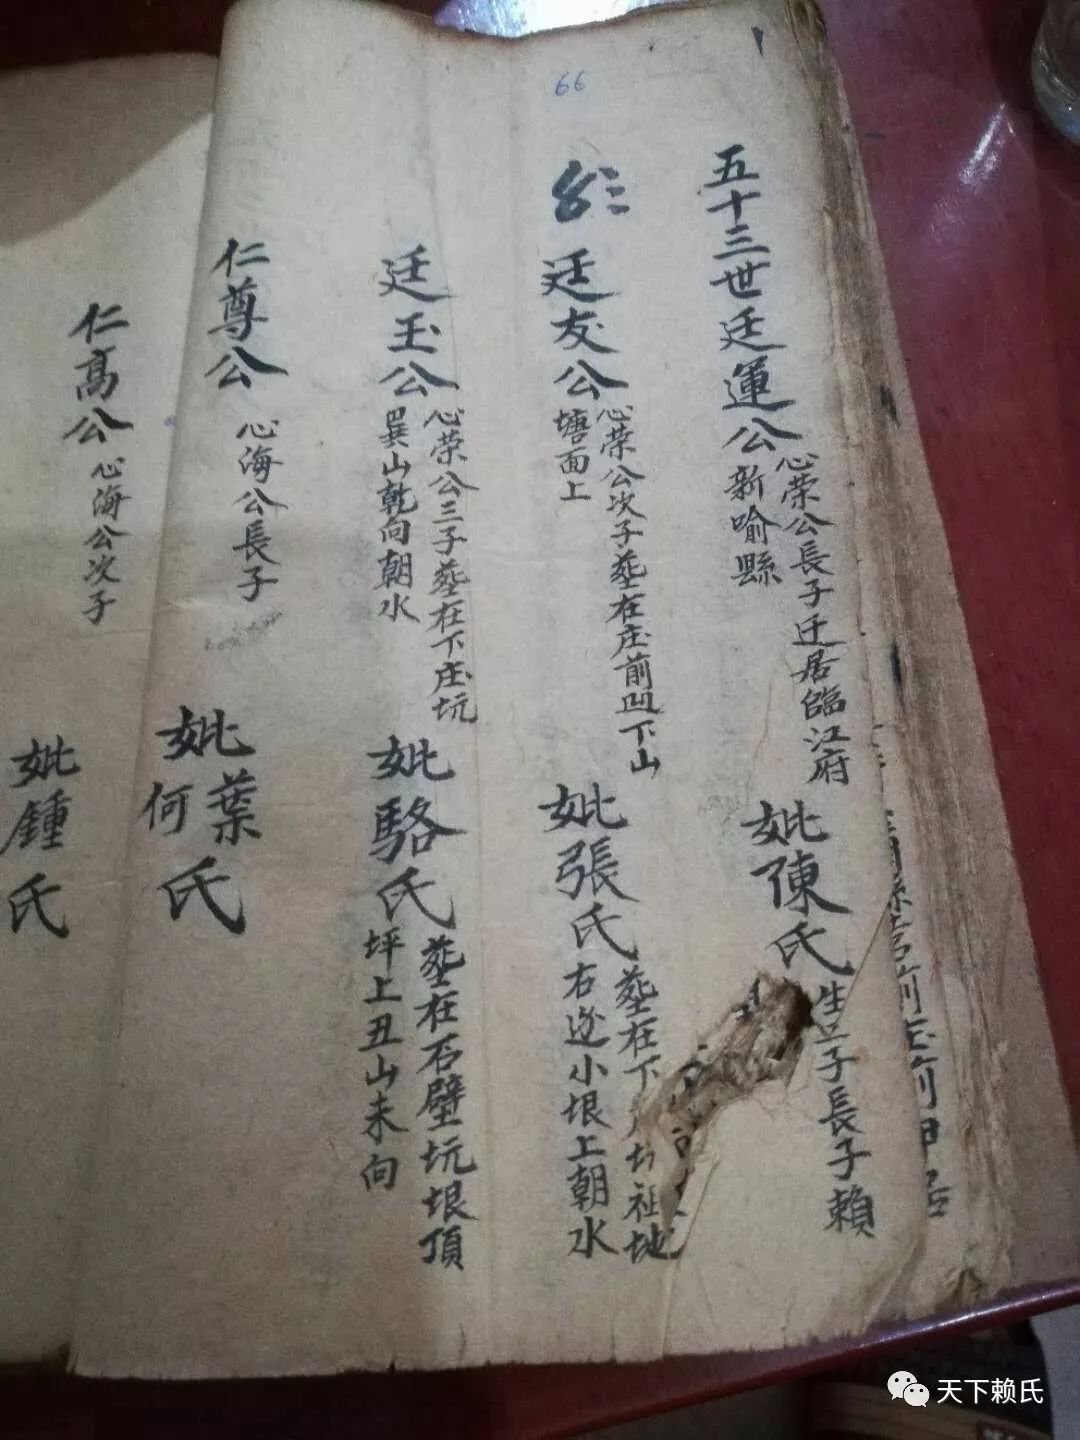 66
五十三世廷運公
心荣公長子迁居臨江府
新喻縣
妣陳氏
生 子長子賴
廷友公
心荣公次子葬在庄前凹下山
塘面上
妣張氏
葬在下 坑祖地
右邊小垠上朝水
廷玉公
心荣公三子葬在下庄坑
巽山乾向朝水
妣駱氏
葬在石壁坑垠頂
坪上丑山未向
仁尊公
心海公長子
妣葉何氏
仁高公
心海公次子
妣鍾氏
天下赖氏